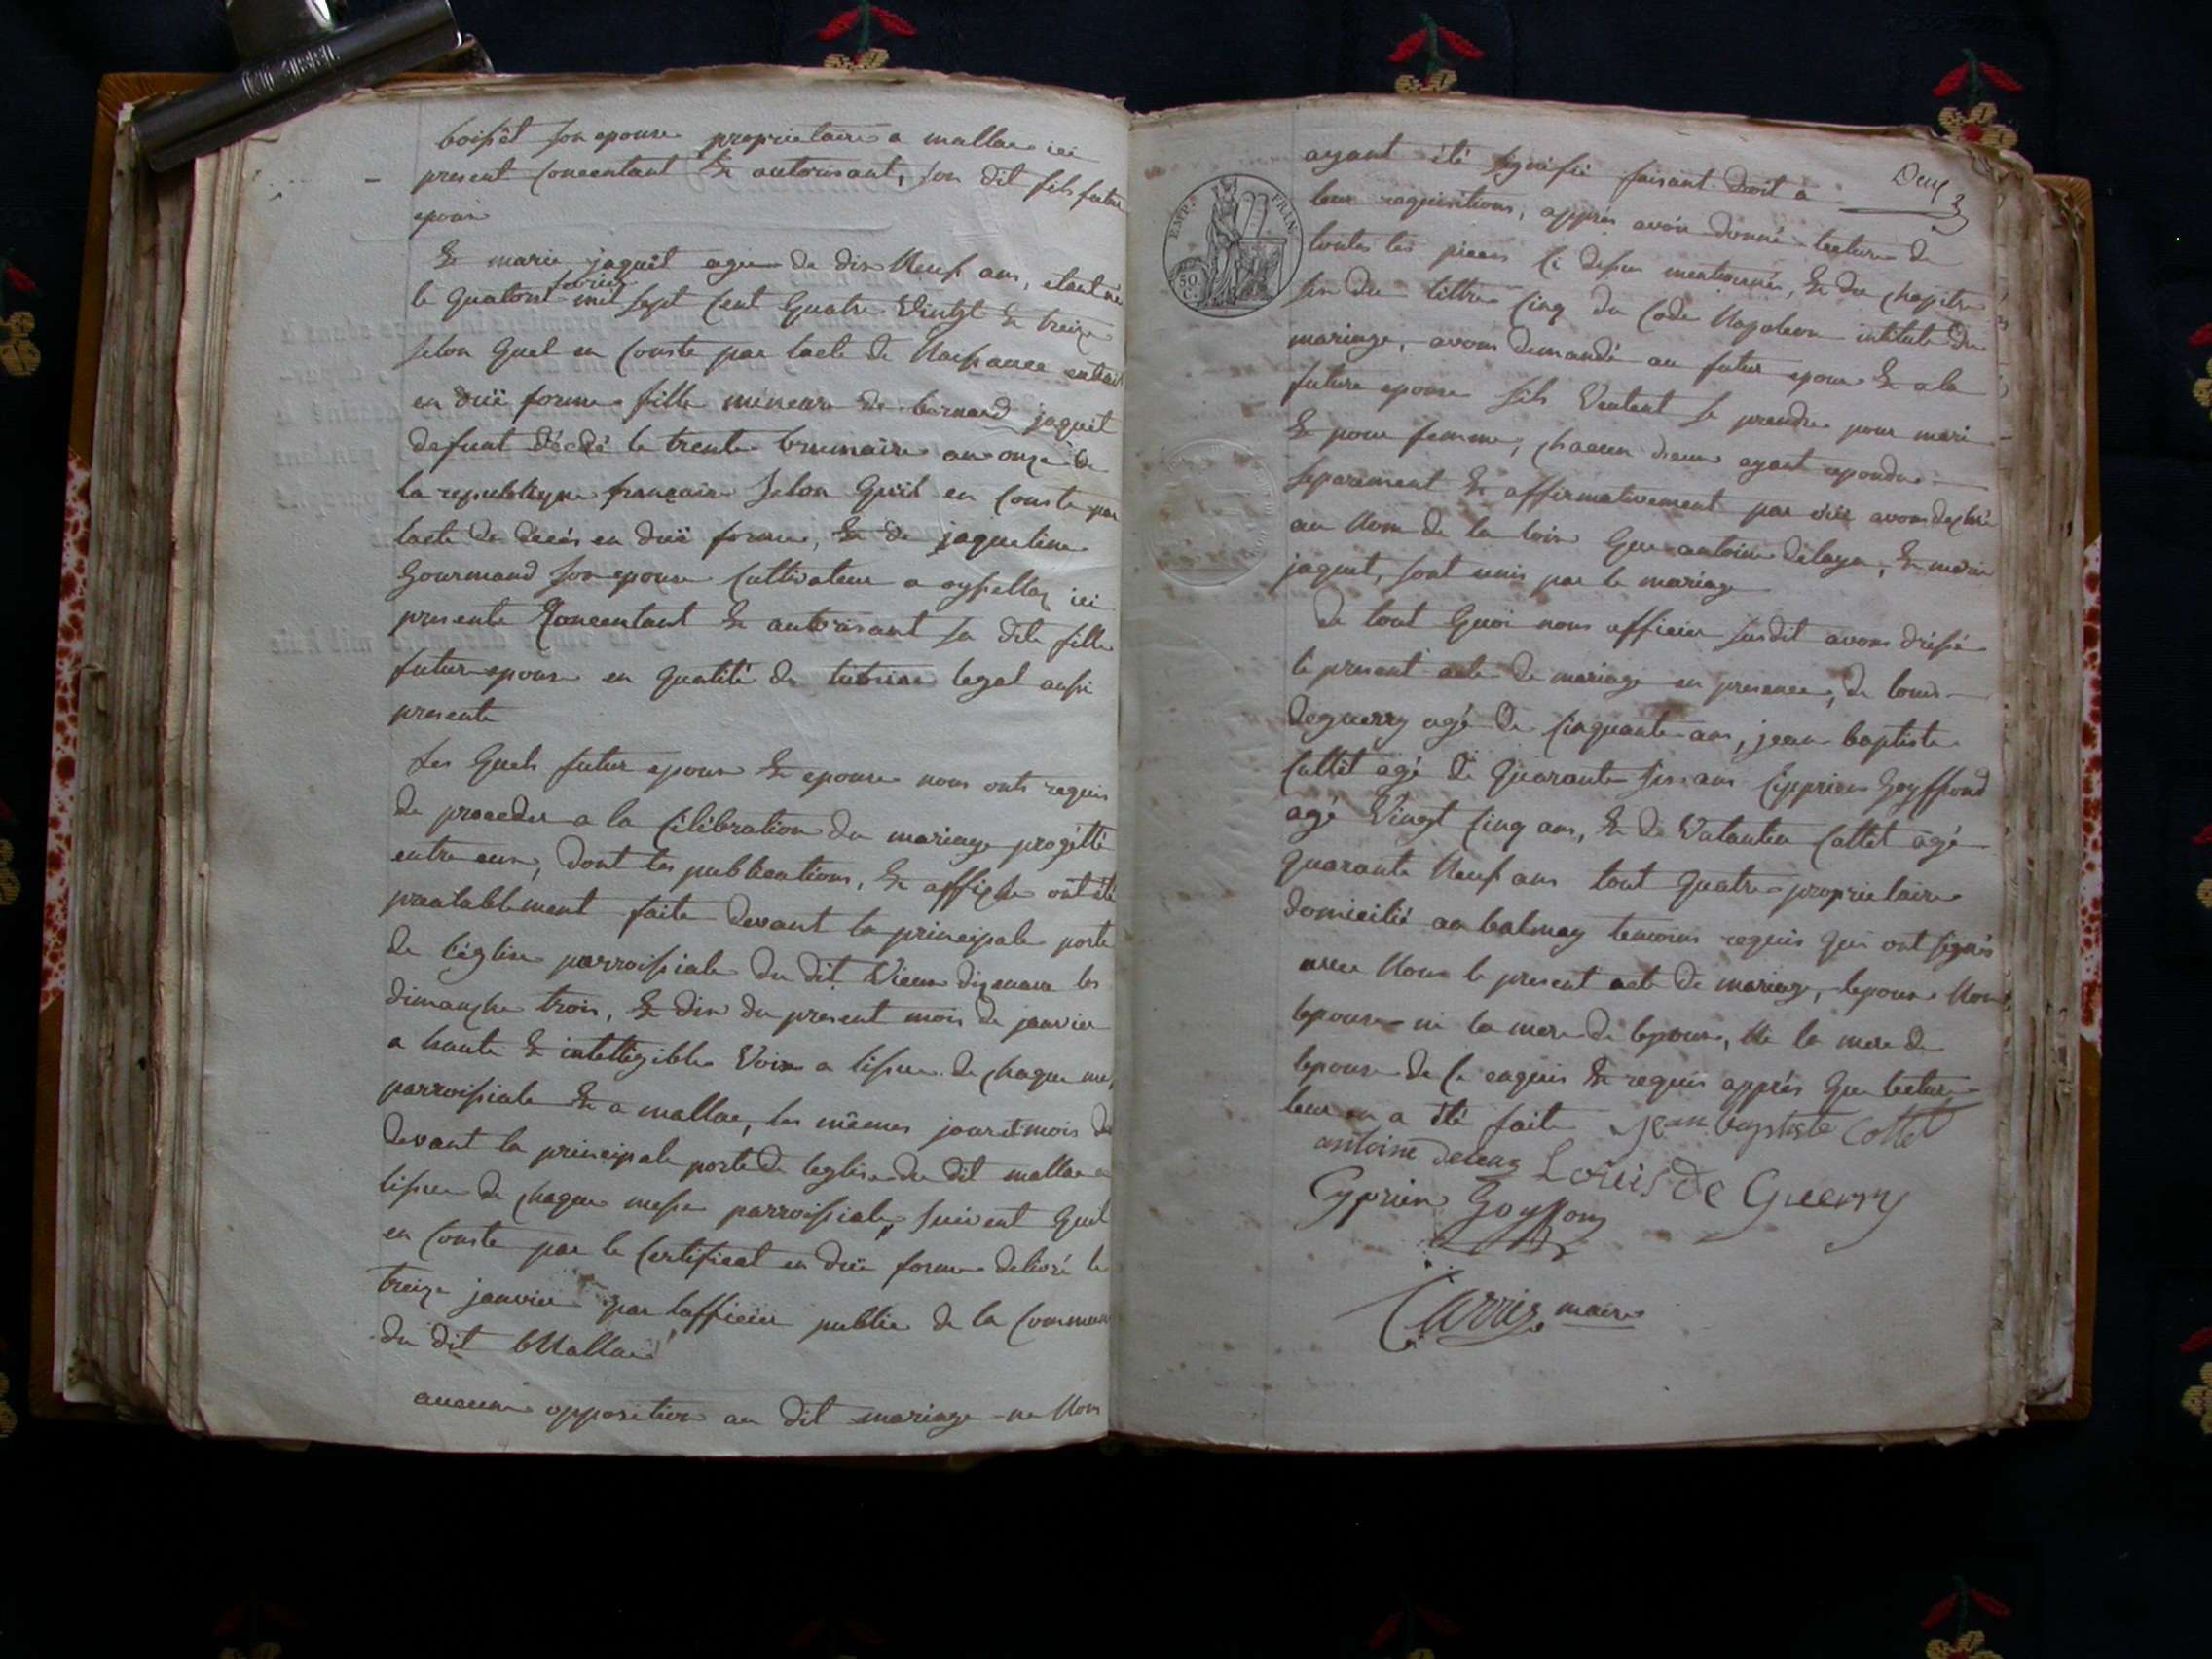 boissêt son epouse proprietaire a mallac ici
present concentant & autorisant, son dit fils futur
epoux
& marie jaquêt agée de dix Neuf ans, etant née
le quatorze fevrier mil sept Cent quatre Vingt & treize
selon quel en Conste par lacte de Naissance extrait
en duë forme fille mineure de bernard jaquet
defunt décédé le trente brumaire an onze de
la republique française selon quil en Conste par
lacte de décés en duë forme, & de jaqueline
Gourmand son epouse Cultivateur a oyssellaz ici
presente Concentant & autorisant sa dite fille
future epouse en qualité de tutrice legal aussi
presente
Les quels futur epoux & epouse nous onts requis
de proceder a la Célébration du mariage progétté
entre eux, dont les publications, & affiche ont été
prealablement faite devant la principale porte
de l'églize parroissiale du dit Vieux dizenave les
dimanche trois, & dix du present mois de janvier
a haute & intelligible Voix a lissue de chaque messe
parroissiale & a mallac, les mêmes jour et mois
devant la principale porte de leglise du dit mallac a
lissue de chaque messe parroissiale, suivent quil
en Conste par le Certificat en duë forme delivré le
treize janvier par lofficier public de la Commune
du dit Mallac
aucune opposition au dit mariage ne Nous
Deux
EMP. FRAN.
50 C.
ayant été signifié faisant droit a
leur requisitions, apprés avoir donné lecture de
toutes les pieces Ci dessus mentionnés, & du chapitre
six du tittre Cinq du Code Napoleon intitule du
mariage, avons demandé au futur epoux & a la
future epouse sils Veulent se prendre pour mari
& pour femme, chacun deux ayant repondu
separement & affirmativement par oüi avons declaré
au Nom de la loix que antoine delaya, & marie
jaquet, sont unis par le mariage
de tout quoi nous officier susdit avons dréssé
le present acte de mariage en presence, de louis
deguerry agé de Cinquante ans, jean baptiste
Cattet agé de quarante six ans Ciprien Goyffond
agé Vingt Cinq ans, & de Valantin Cattet agé
quarante Neuf ans tout quatre proprietaire
domicilié au balmay temoins requis qui ont signés
avec Nous le present acte de mariage, lepoux Non
lepouse ni la mere de lepoux, Ni la mere de
lepouse de Ce enquis & requis apprés que lecture
leur en a été faite jean baptiste Cottet
antoine Louis de Guerry
Cyprien Goyffon
Carrig maire